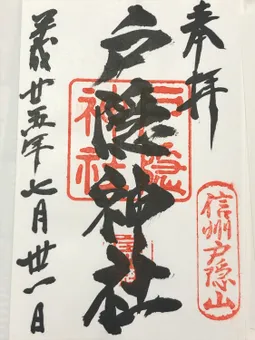 奉拝
戸隠神社
戸隠
神社
信州戸隠山
平成廿五年七月卅一日